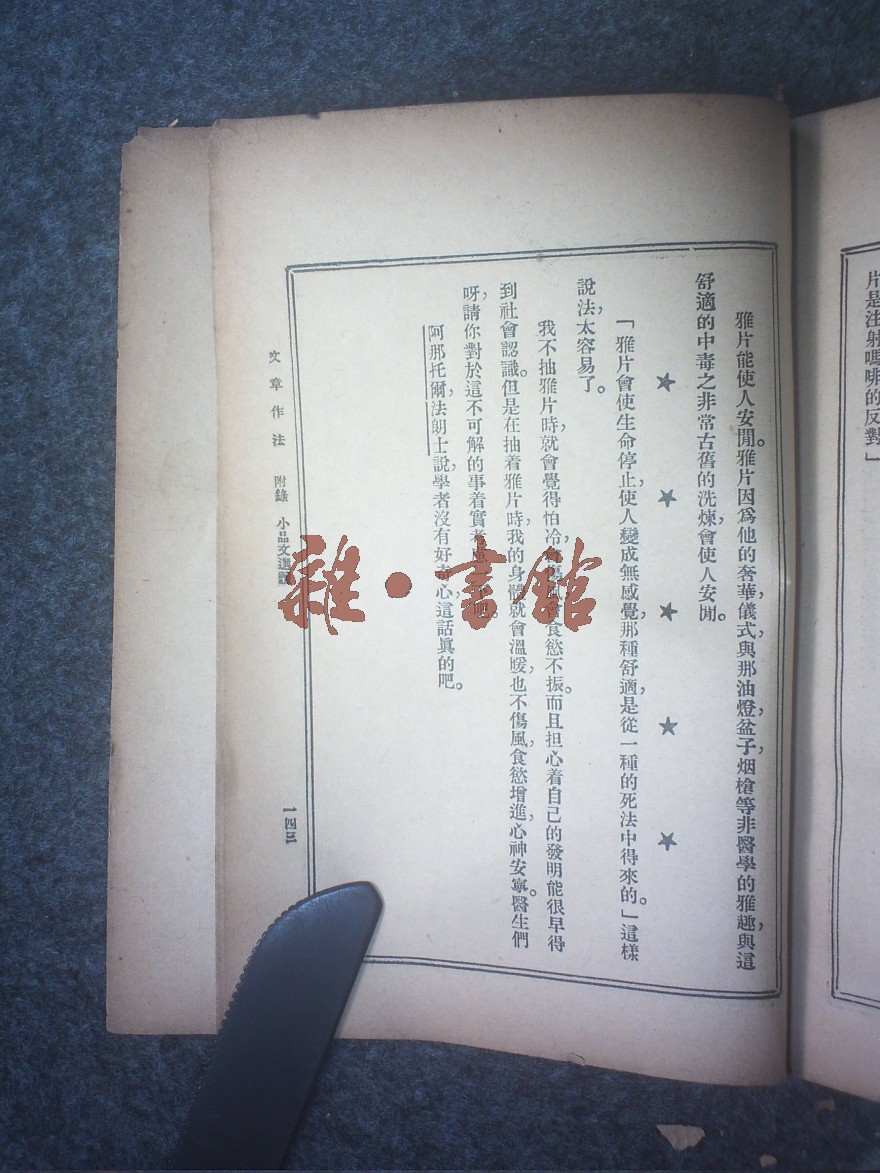 片是注射嗎啡的反對」
雅片能使人安閒。雅片因爲他的奢華,儀式,與那油燈,盆子,烟槍等非醫學的雅趣,與這
舒適的中毒之非常古舊的洗煉,會使人安閒。
★ ★ ★ ★ ★
「雅片會使生命停止,使人變成無感覺,那種舒適,是從一種的死法中得來的。」這樣
說法,太容易了。
我不抽雅片時,就會覺得怕冷,會傷風,會食慾不振。而且担心着自己的發明能很早得
到社會認識。但是在抽着雅片時,我的身體就會溫暖,也不傷風,食慾增進,心神安寧。醫生們
呀,請你對於這不可解的事,着實考 吧。
阿那托爾,法朗士說,學者沒有好奇心,這話眞的吧。
文章作法 附錄 小品文選
一四三
雜·書館